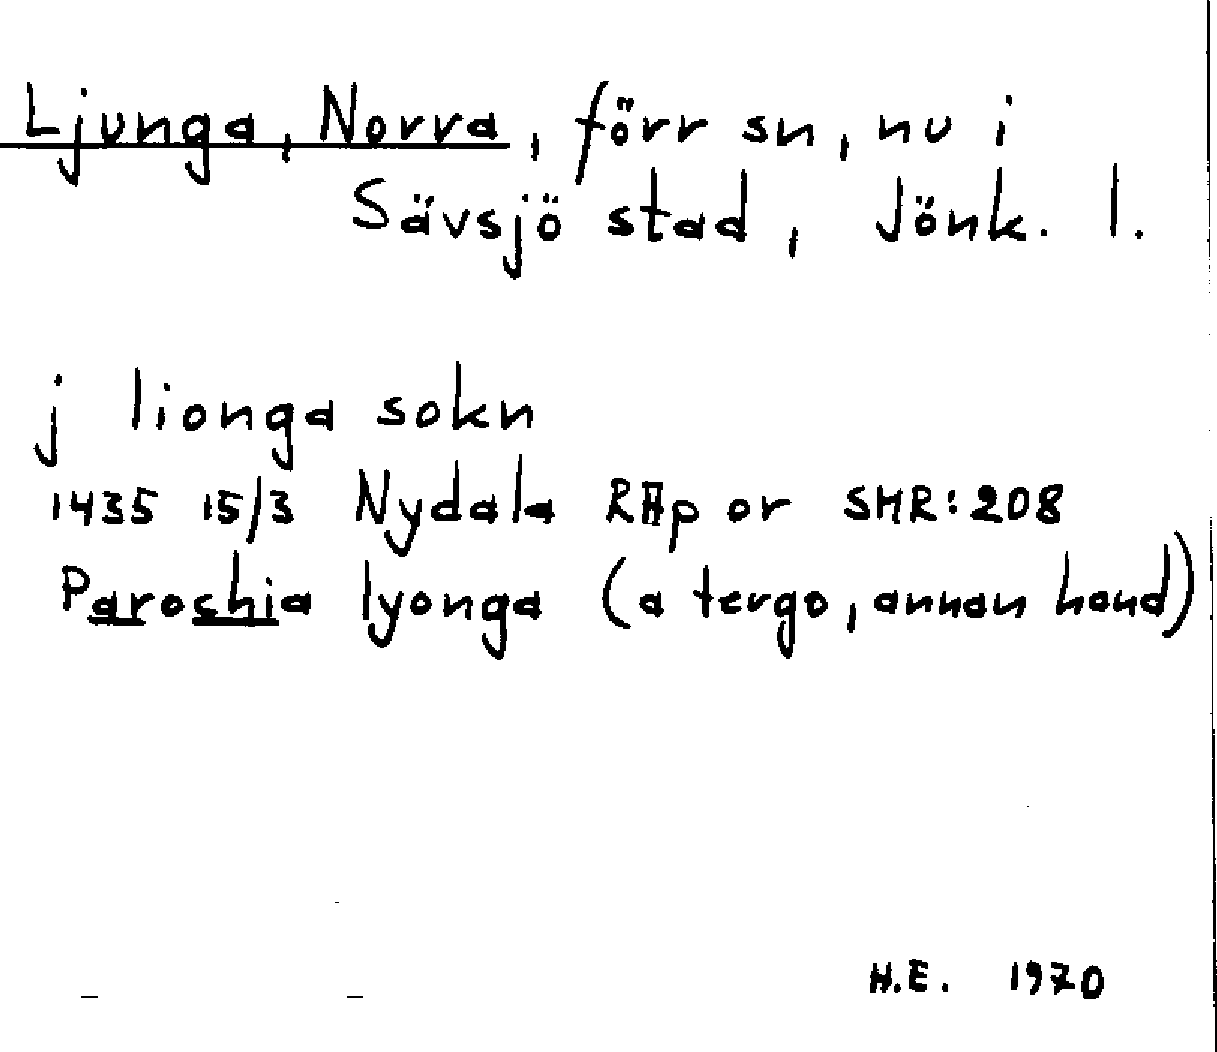 Ljunga, Norra, förr sn, nu i
Sävsjö stad, Jönk. l.
j lionga sokn
1435 15/3 Nydala RAp or SMR:208
Paroshia lyonga (a tergo, annan hand)
H.E. 1970